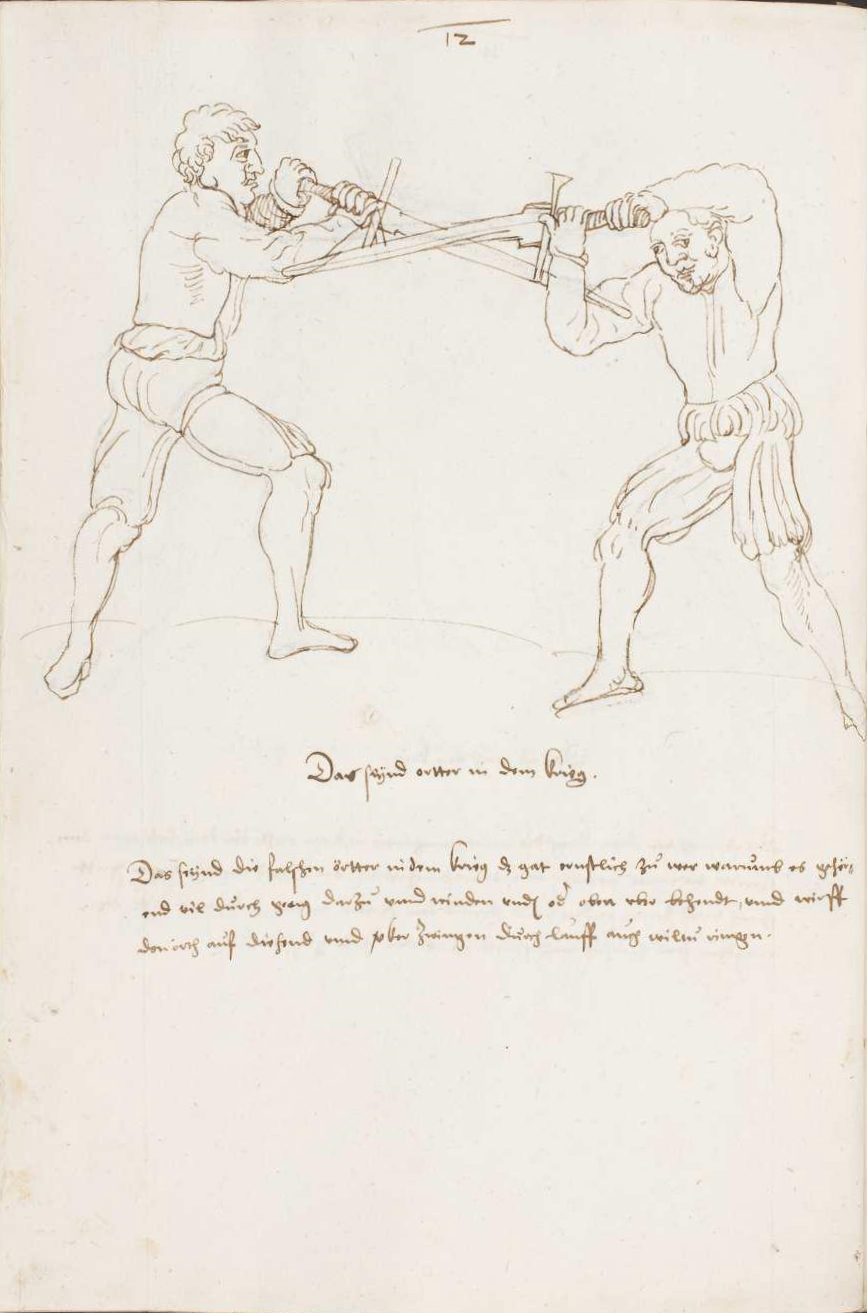 12
Das seynd ortter in dem krieg.
Das seynd die falschen örtter in dem krieg dz gat ernstlich zu wer warumb es gehör
end vil durch geng darzu vnnd winden vnd od oben vber behendt, vnnd wirff
den orth auf die hend vnnd vber zwingen durch lauff auch wiltu ringen.